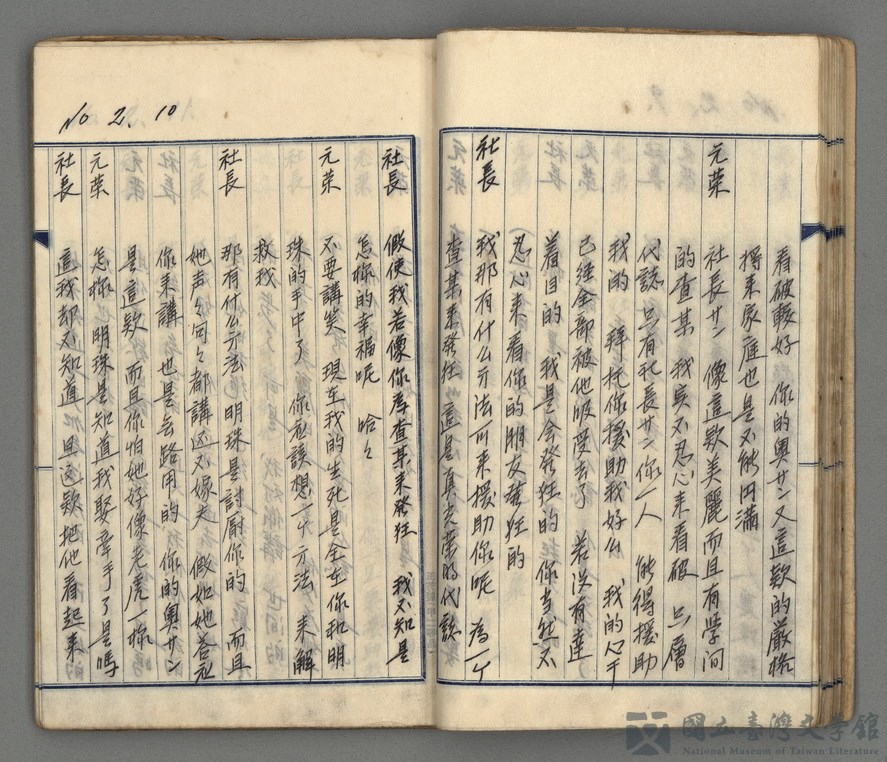 看破較好 你的奧サン又這款的嚴格
将来家庭也是不能円滿
元荣 社長サン 像這款美麗而且有學问
的查某 我实不忍心来看破 只層
代誌 只有社長サン你一人 能得援助
我的 拜托你援助我好么 我的心干
已経全部被他吸受去了 若没有達
着目的 我是会發狂的 你当然不
忍心来看你的朋友發狂的
社長 我那有什么方法可来援助你呢 為一个
查某来發狂 這是真光荣的代誌
No 2. 10
社長 假使我若像你為查某来發狂 我不知是
怎樣的幸福呢 哈々
元荣 不要講笑 現在我的生死是全在你和明
珠的手中了 你应該想一个方法 来解
救我
社長 那有什么方法 明珠是討厭你的 而且
她声々句々都講返不嫁夫 假如她答应
你来講 也是无路用的 你的奧サン
是這款 而且你怕她好像老虎一樣
元荣 怎樣 明珠是知道我娶牽手了是嗎
社長 這我却不知道 但這款把他看起来
國立臺灣文學館
National Museum of Taiwan Literature